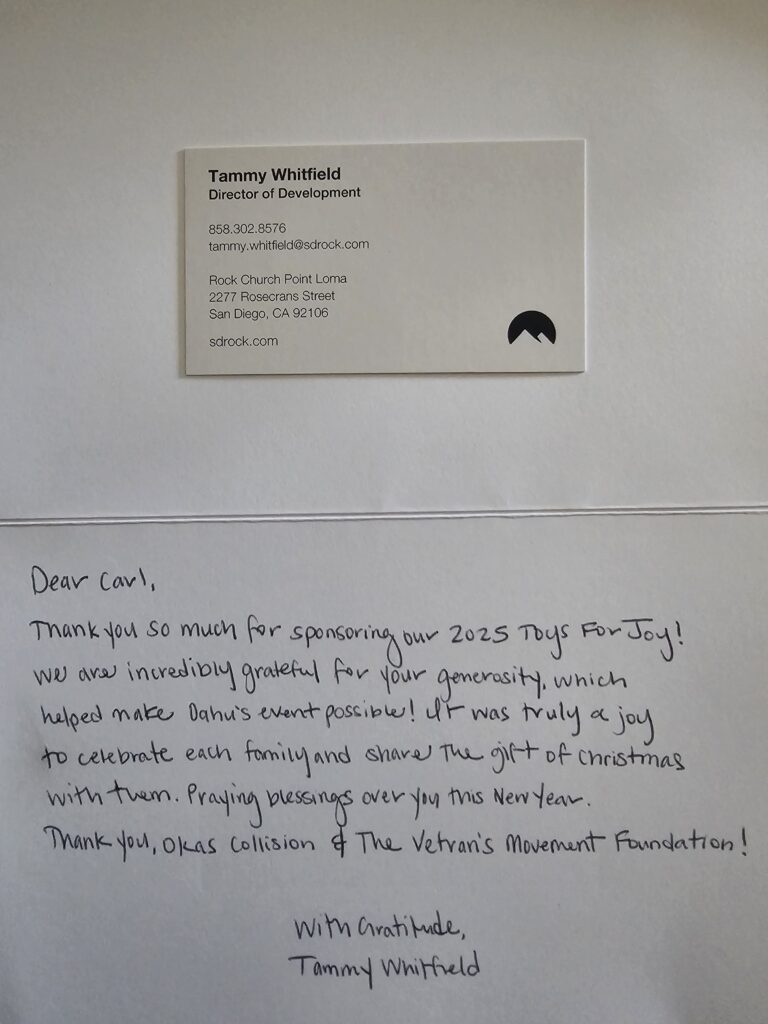 Tammy Whitfield
Director of Development
858.302.8576
tammy.whitfield@sdrock.com
Rock Church Point Loma
2277 Rosecrans Street
San Diego, CA 92106
sdrock.com
Dear Carl,
Thank you so much for sponsoring our 2025 Toys For Joy!
we are incredibly grateful for your generosity, which
helped make event possible! It was truly a joy
to celebrate each family and share the gift of Christmas
with them. Praying blessings over you this New Year.
Thank you, Okas Collision & The Vetran's Movement Foundation!
With Gratitude,
Tammy Whitfield